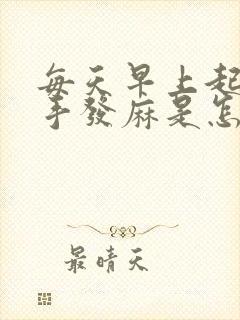 每天早上起
手發麻是怎
最晴天